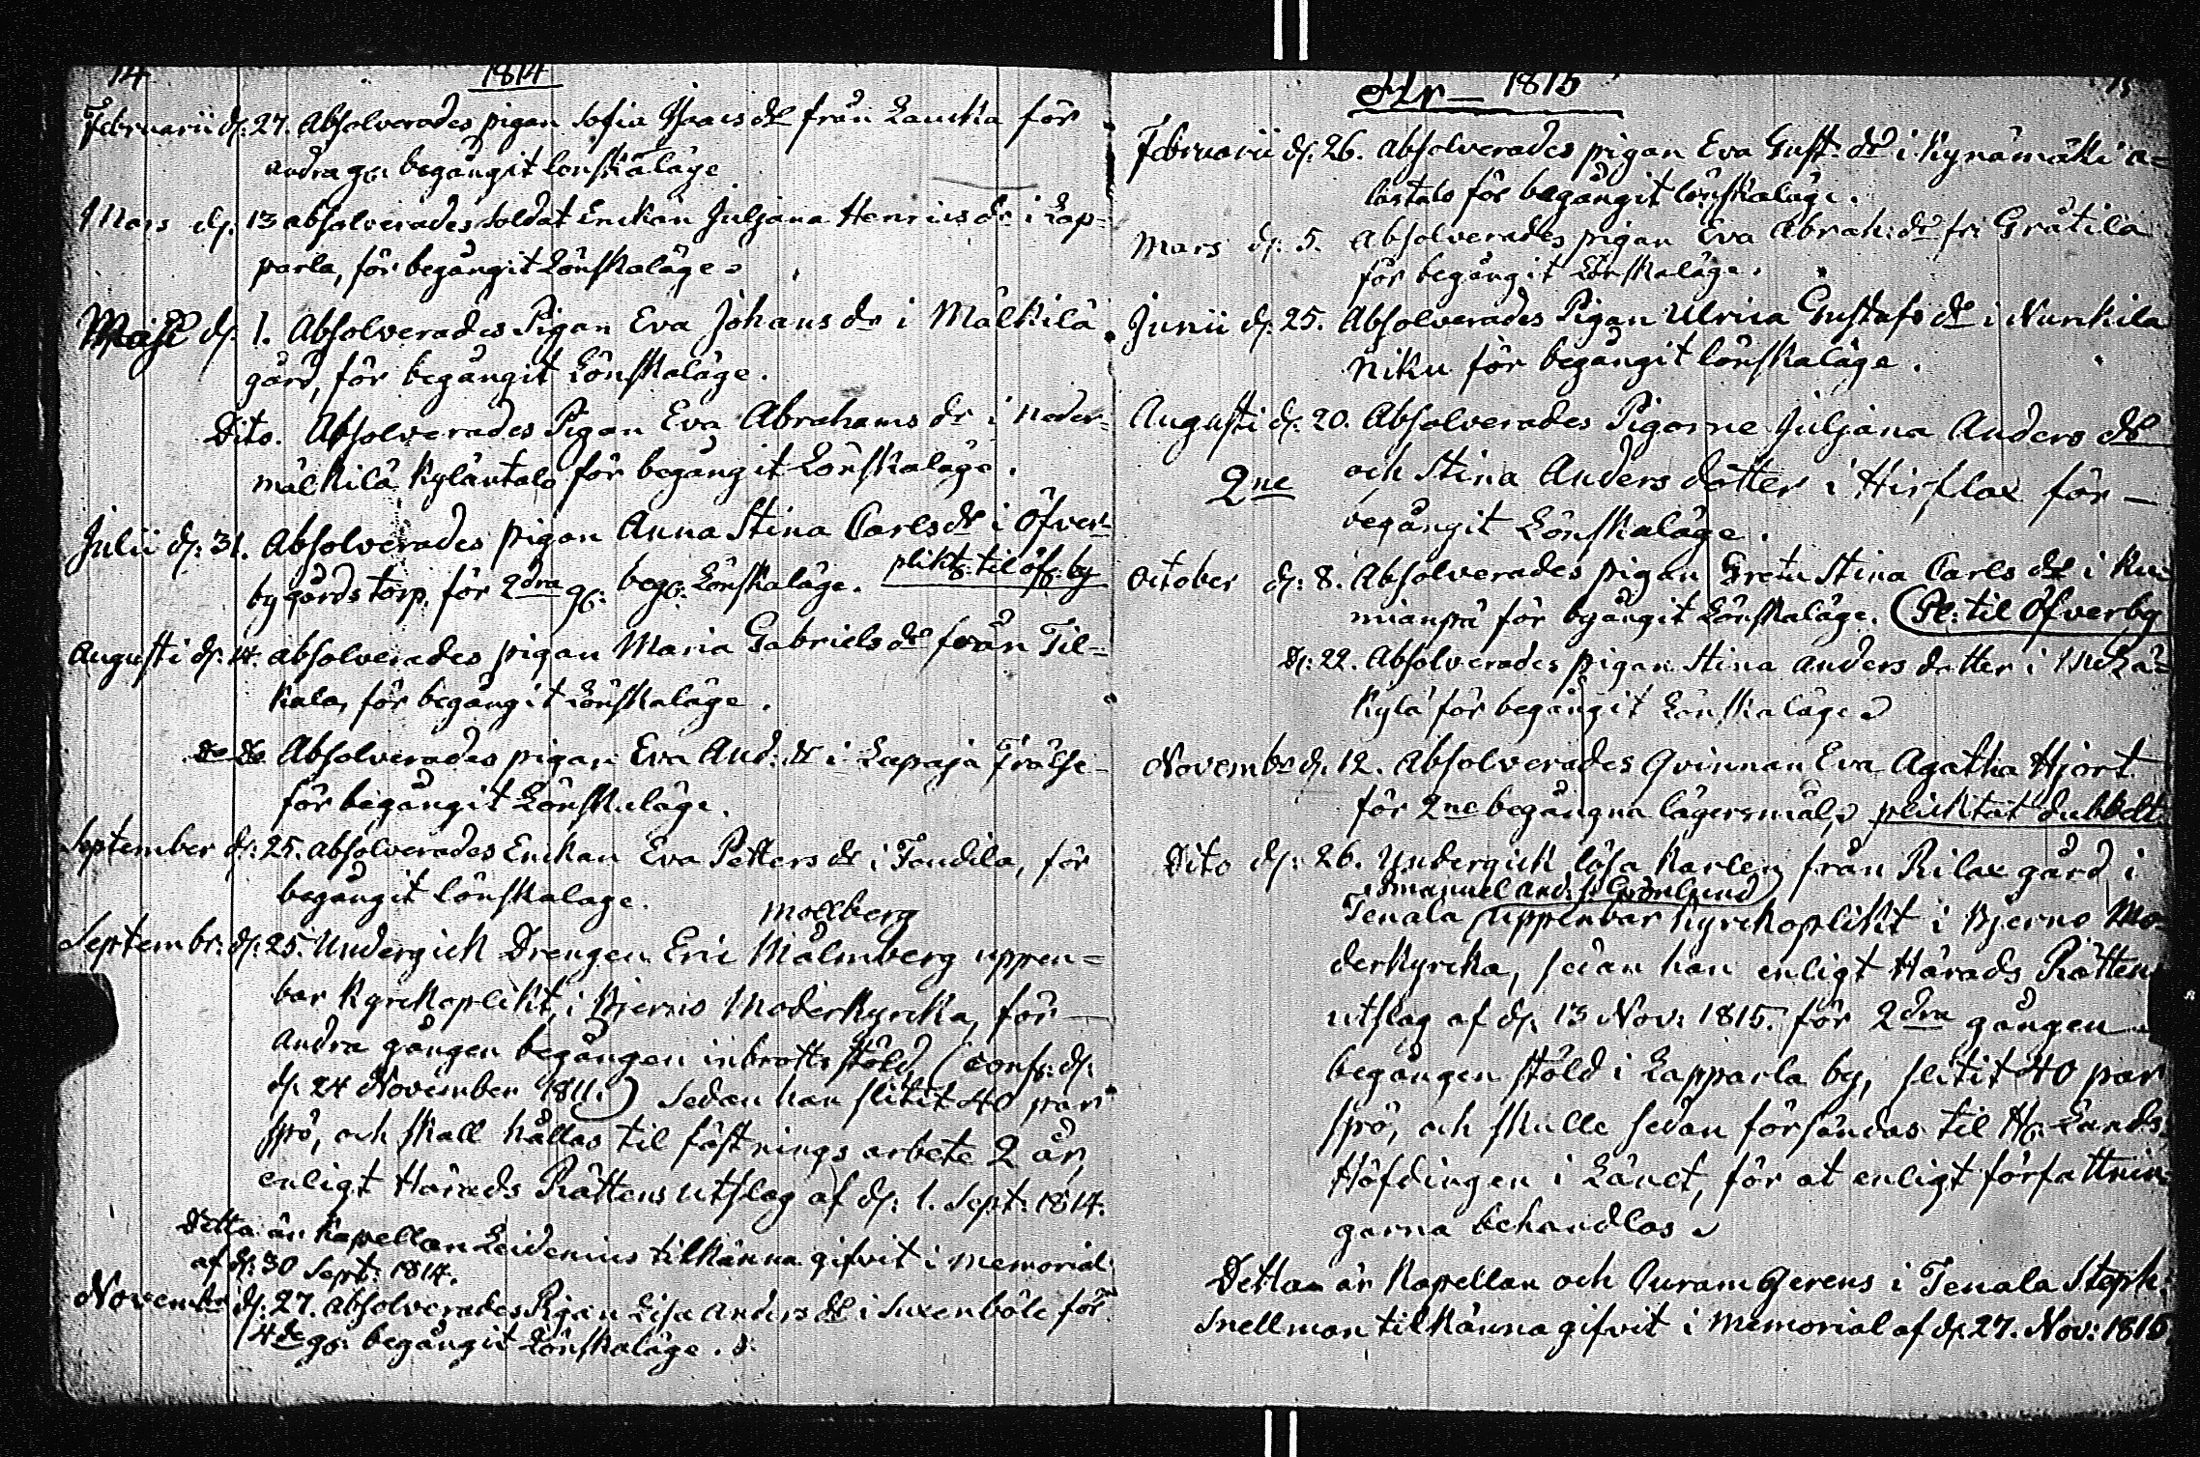 14
1814
Februarii d: 27. Absolverades pigan Sofia Isaacs dr från Laukka för
andra gg: begångit lönskaläge
Mars d: 13 absolverades soldat Enckan Juljana Henrics dr i Lap-
parla, för begångit Lönskaläge
Maji d: 1. Absolverades Pigan Eva Johans dr i Målkilä
gård, för begångit Lönskaläge.
Dito. Absolverades Pigan Eva Abrahams dr i Neder-
målkilä Kyläntalo för begångit Lönskaläge.
Julii d: 31. Absolverades pigan Anna Stina Carls dr i Öfver-
by gårds torp, för 2dra gg: begg: Lönskaläge. plikt: til öfr: by
Augusti d: 14. absolverades pigan Maria Gabriels dr från Til-
kala, för begångit Lönskaläge.
do do Absolverades pigan Eva And: dr i Lapaja Frälse
för begångit Lönskaläge.
September d: 25. absolverades Enckan Eva Petters dr i Tandila, för
begångit lönskalage.
Mollberg
Septembr: d: 25. Undergick Drengen Eric Målmberg uppen-
bar Kyrckoplikt, i Bjerno Moderkyrcka, för
andra gången begången inbrotts stöld, (conf: d:
d: 24 November 1811.) Sedan han slitit 40 par
spö, och skall hållas til fästnings arbete 2 år,
enligt Härads Rättens utslag af d: 1. Sept: 1814.
Detta är Kapellan Leidenius tilkänna gifvit i Memorial
af d: 30 Sept: 1814.
November d: 27. Absolverades Pigan Lisa Anders dr i Suxenböle för
4de gg: begångit Lönskaläge.
1815
15
Februarii d: 26. absolverades pigan Eva Gust: dr i Kynämäki a-
lastalo för begångit lönskaläge.
Mars d: 5. Absolverades pigan Eva Abrah: dr fr: Gråtila
för begångit Lönskaläge.
Junii d: 25. Absolverades Pigan Ulrica Gustafs dr i Nurckila
Niku för begångit lönskaläge.
Augusti d: 20. Absolverades Pigorne Juljana Anders dr
2ne och Stina Anders dotter i Hirslax för
begångit Lönskaläge.
October d: 8. Absolverades pigan Greta Stina Carls dr i Ku-
mianpä för begångit Lönskaläge. (Pl: til Öfverby
D: 22. Absolverades pigan Stina Anders dotter i Metzä-
kylä för begångit Lönskaläge
Novembr d: 12. Absolverades Qvinnan Eva Agatha Hjort
för 2ne begångna lägersmål, plicktat dubbelt
Dito d: 26. Undergick lösa Karlen från Rilax gård i
Emanuel And: s: Grönlund
Tenala uppenbar Kyrckoplikt i Bjerno Mo-
derkyrcka, sedan han enligt Härads Rättens
utslag af d: 13 Nov: 1815. för 2dra gången
begången stöld i Lapparla by, slitit 40 par
spö, och skulle sedan försändas til Hr: Lands-
Höfdingen i Länet, för at enligt författnin-
garna behandlas
Detta är Kapellan och Curam Gerens i Tenala Steph:
Snellman tilkänna gifvit i Memorial af d: 27. Nov: 1815